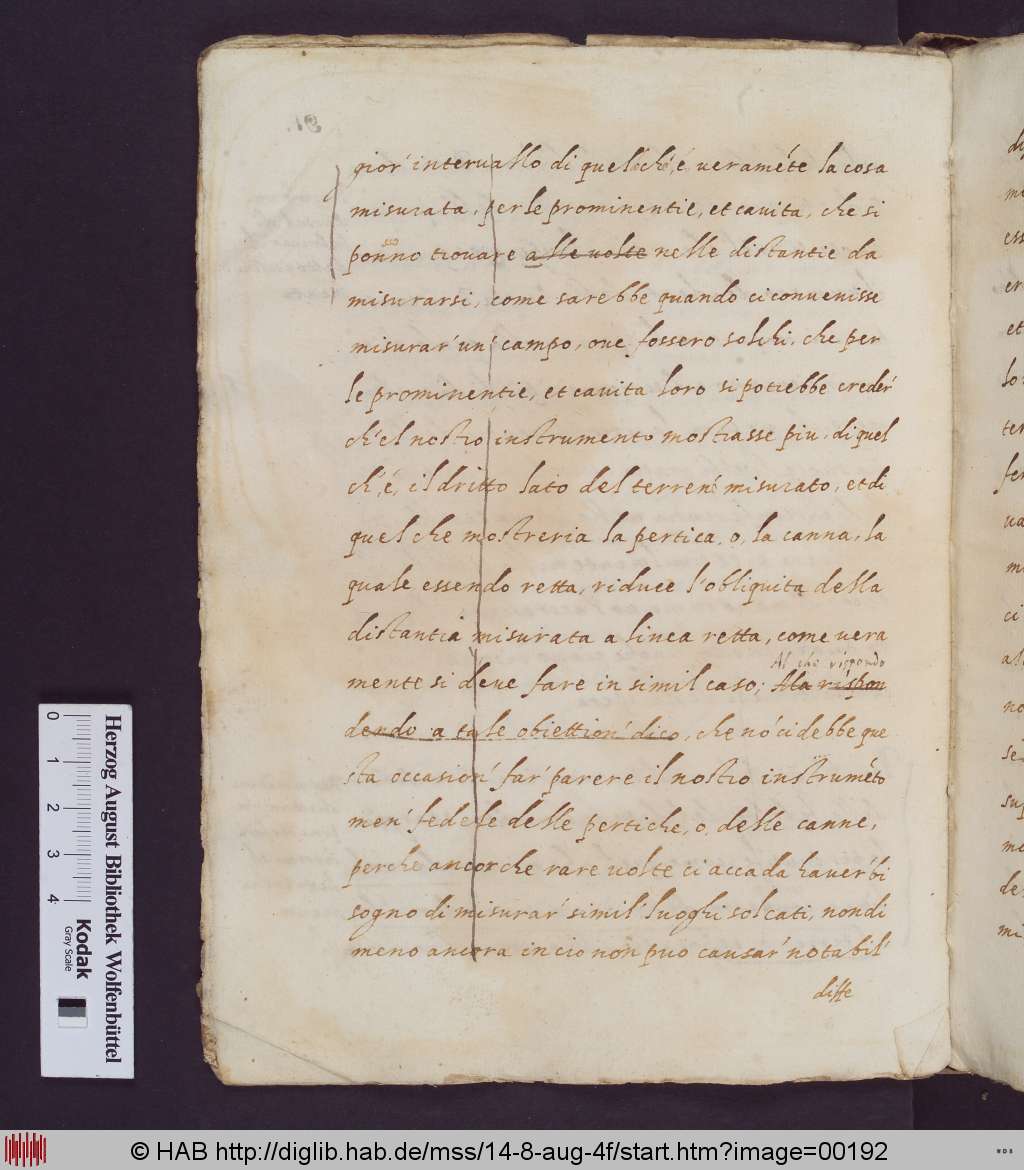 gior' interuallo di quel ch'é ueraméte la cosa
misurata, per le prominentie, et cauita, che si
ponno trouare alle uolte nelle distantie da
misurarsi, come sarebbe quando ci conuenisse
misurar' un' campo, oue fossero solchi, che per
le prominentie, et cauita loro si potrebbe creder'
ch'el nostro instrumento mostrasse piu, di quel
ch'é, il dritto lato del terren' misurato, et di
quel che mostreria la pertica, o, la canna, la
quale essendo retta, riduce l'obliquita della
distantia misurata a linea retta, come uera
Al che rispondo
mente si deue fare in simil caso; Ma rispon
dendo a tale obiettion' dico, che nó ci debbe que
sta occasion' far' parere il nostro instruméto
men' fedele delle pertiche, o, delle canne,
perche ancorche rare uolte ci accada hauer' bi
sogno di misurar' simil' luoghi solcati, nondi
meno ancora in cio non puo causar' notabil'
diffe
0 1 2 3 4
Herzog August Bibliothek Wolfenbüttel
Kodak
Gray Scale
© HAB http://diglib.hab.de/mss/14-8-aug-4f/start.htm?image=00192